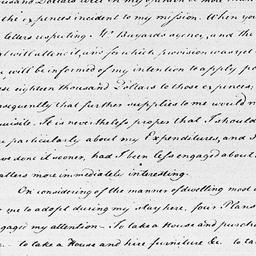 usand Dollars will in my opinion be more than
the expences incident to my mission. When you
letters respecting Mr Buyards agency, and the
al will attend it, and for which provision was yet
will be informed of my intention to apply par
se eighteen thousand Dollars to those expences;
sequently that further supplies to me would n
quisite. It is nevertheless proper that I should
e particularly about my Expenditures, and I
ve done it sooner, had I been less engaged about
atters more immediately interesting.
On considering of the manner of dwelling most
me to adopt during my stay here, four Plans
ngaged my attention. To take a House and purcha
— to take a House and hire furniture &c. to ta